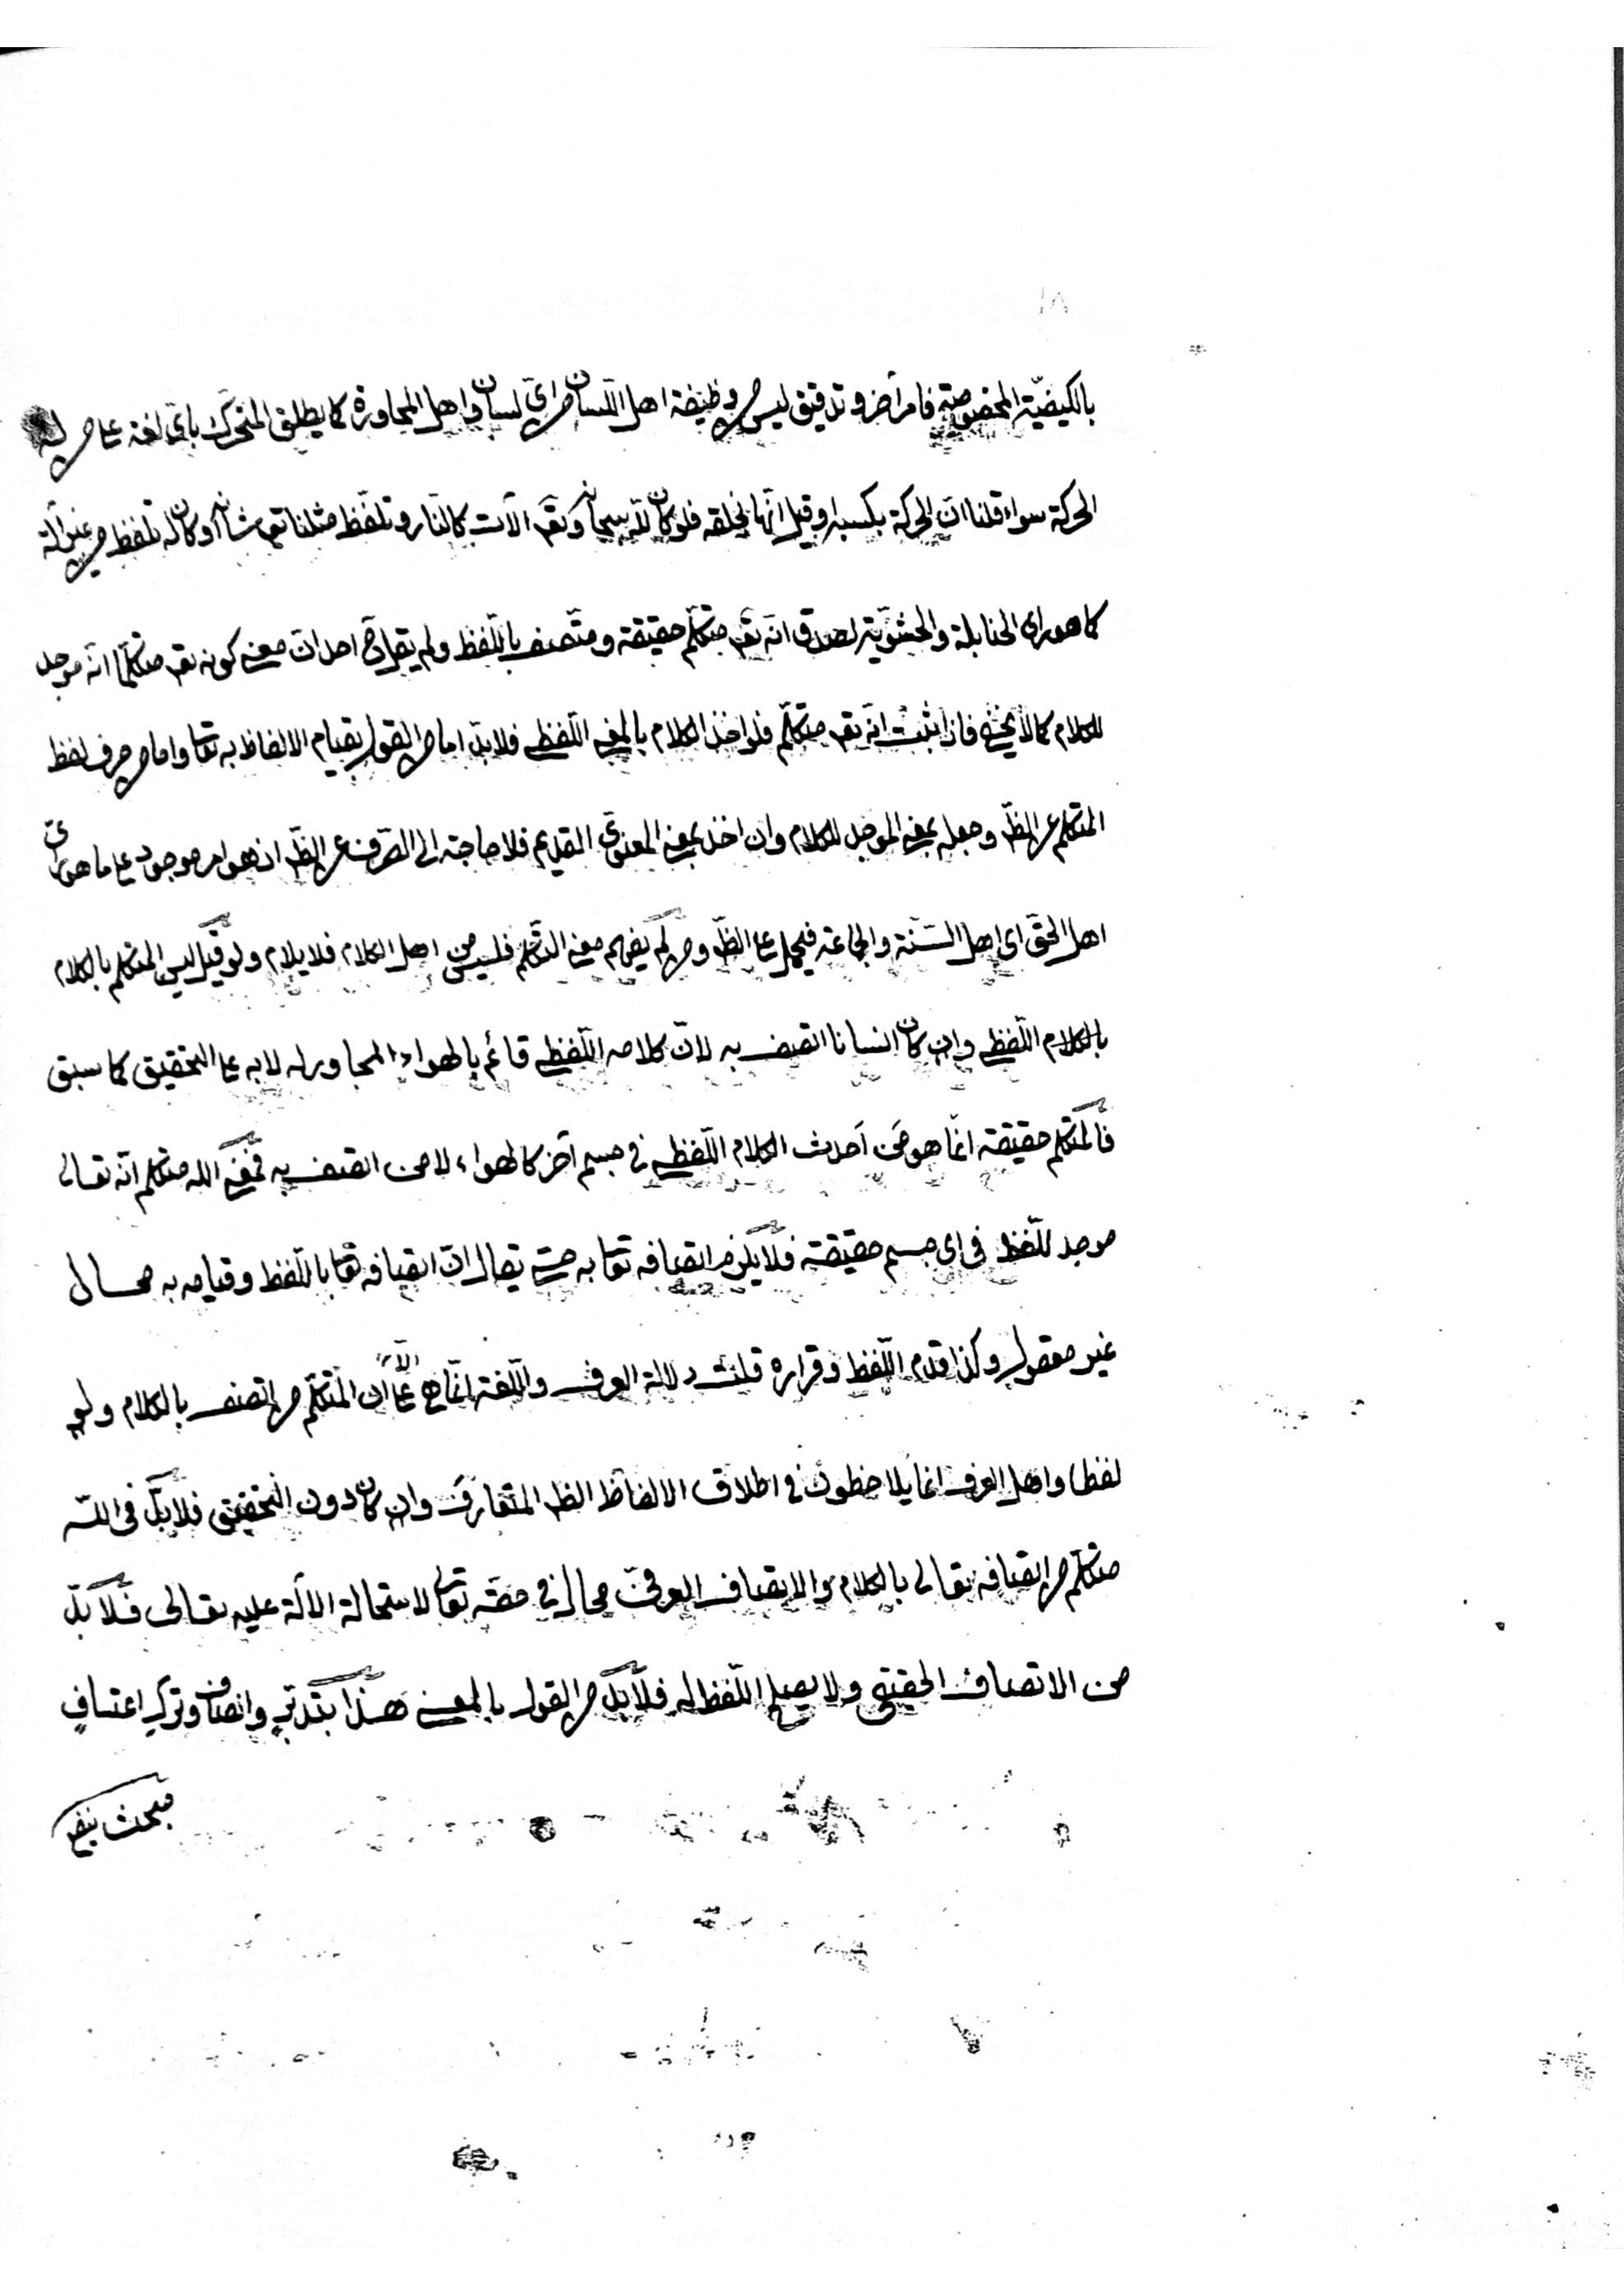 بالكيفيّة المخصوصة فامر آخر وتدقيق ليس من وظيفة اهل اللسان من اىّ لسان واهل المحاورة كما يطلق المتحرّك باىّ لغة على من له
الحركة سواء قلنا انّ الحركة بكسبه او قيل انّها بخلقه فلو كان للّه سبحانه وتعم آلات كالنار وتلفّظ مثلنا تعم شانه او كان له تلفّظ من غير آلة
كما هو رأى الحنابلة والحشويّة لصدق انّه تعم متكلّم حقيقة ومتّصف باللّفظ ولم يقل احد انّ معنى كونه تعم متكلّما انّه موجد
للكلام كما لا يخفى فاذا ثبت انّه تعم متكلّم فلو اخذ الكلام بالمعنى اللّفظى فلا بدّ اما من القول بقيام الالفاظ به تعا واما من صرف لفظ
المتكلم عن الظّ وجعله بمعنى الموجد للكلام وان اخذ بمعنى المعنوىّ القديم فلا حاجة الى الصّرف عن الظّ اذ هو امر موجود على ما هو رأى
اهل الحقّ اى اهل السّنّة والجماعة فيحمل على الظّ ومن لم يفهم معنى التكلم فليس من اهل الكلام فلا يلام ولو قيل ليس المتكلم بالكلام
بالكلام اللّفظى وان كان انسانا اتصف به لانّ كلامه اللّفظى قائم بالهواء المجاور له لا به على التحقيق كما سبق
فالمتكلم حقيقة انّما هو مَن اَحدث الكلام اللّفظى فى جسم آخر كالهواء لا من اتصف به فمعنى الله متكلم انّه تعالى
موجد للّفظ فى اى جسم حقيقة فلا يلزم اتصافه تعا به حتى يقال انّ اتصافه تعا باللّفظ وقيامه به محال
غير معقول وكذا قدم اللّفظ وقراره قلت دلالة العرف واللّغة انّما هى على انّ المتكلّم من اتصف بالكلام ولو
لفظا واهل العرف انما يلاحظون فى اطلاق الالفاظ الظ المتعارف وان كان دون التحقيق فلا بدّ فى اللّه
متكلّم من اتصافه تعالى بالكلام والاتصاف العرفىّ محال فى حقّه تعا لاستحالة الآلة عليه تعالى فلا بدّ
من الاتصاف الحقيقى ولا يصلح اللّفظ له فلا بدّ من القول بالمعنى هذا بتدبّر وانصاف وترك اعتساف
مبحث نفع